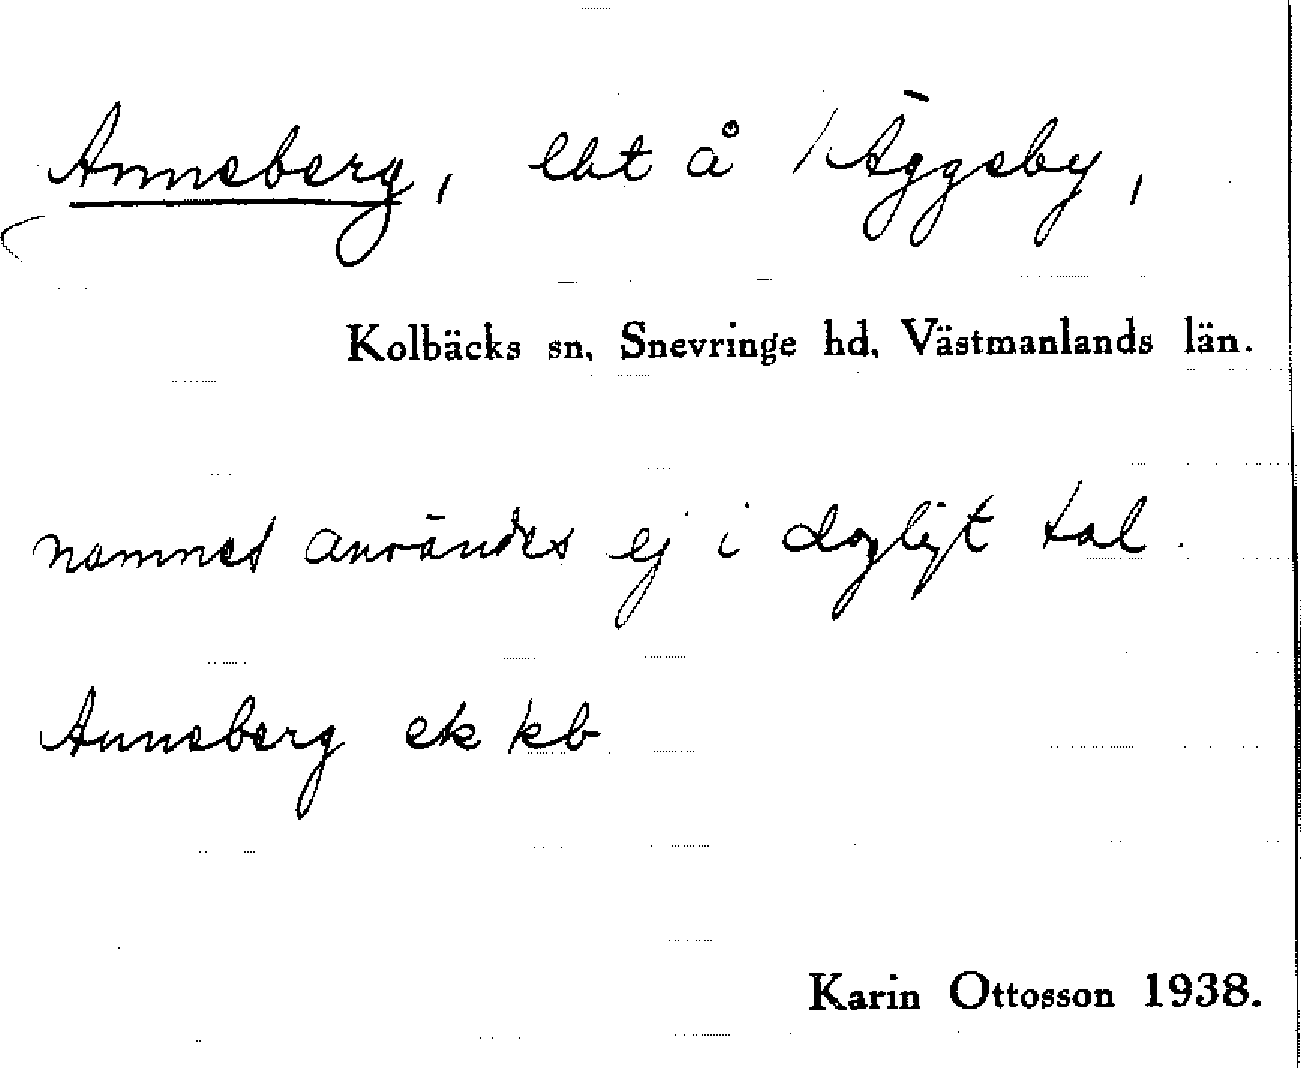 Anneberg, lht å Äggeby,
Kolbäcks sn, Snevringe hd, Västmanlands län.
namnet användes ej i dagligt tal.
Anneberg ek kb
Karin Ottosson 1938.